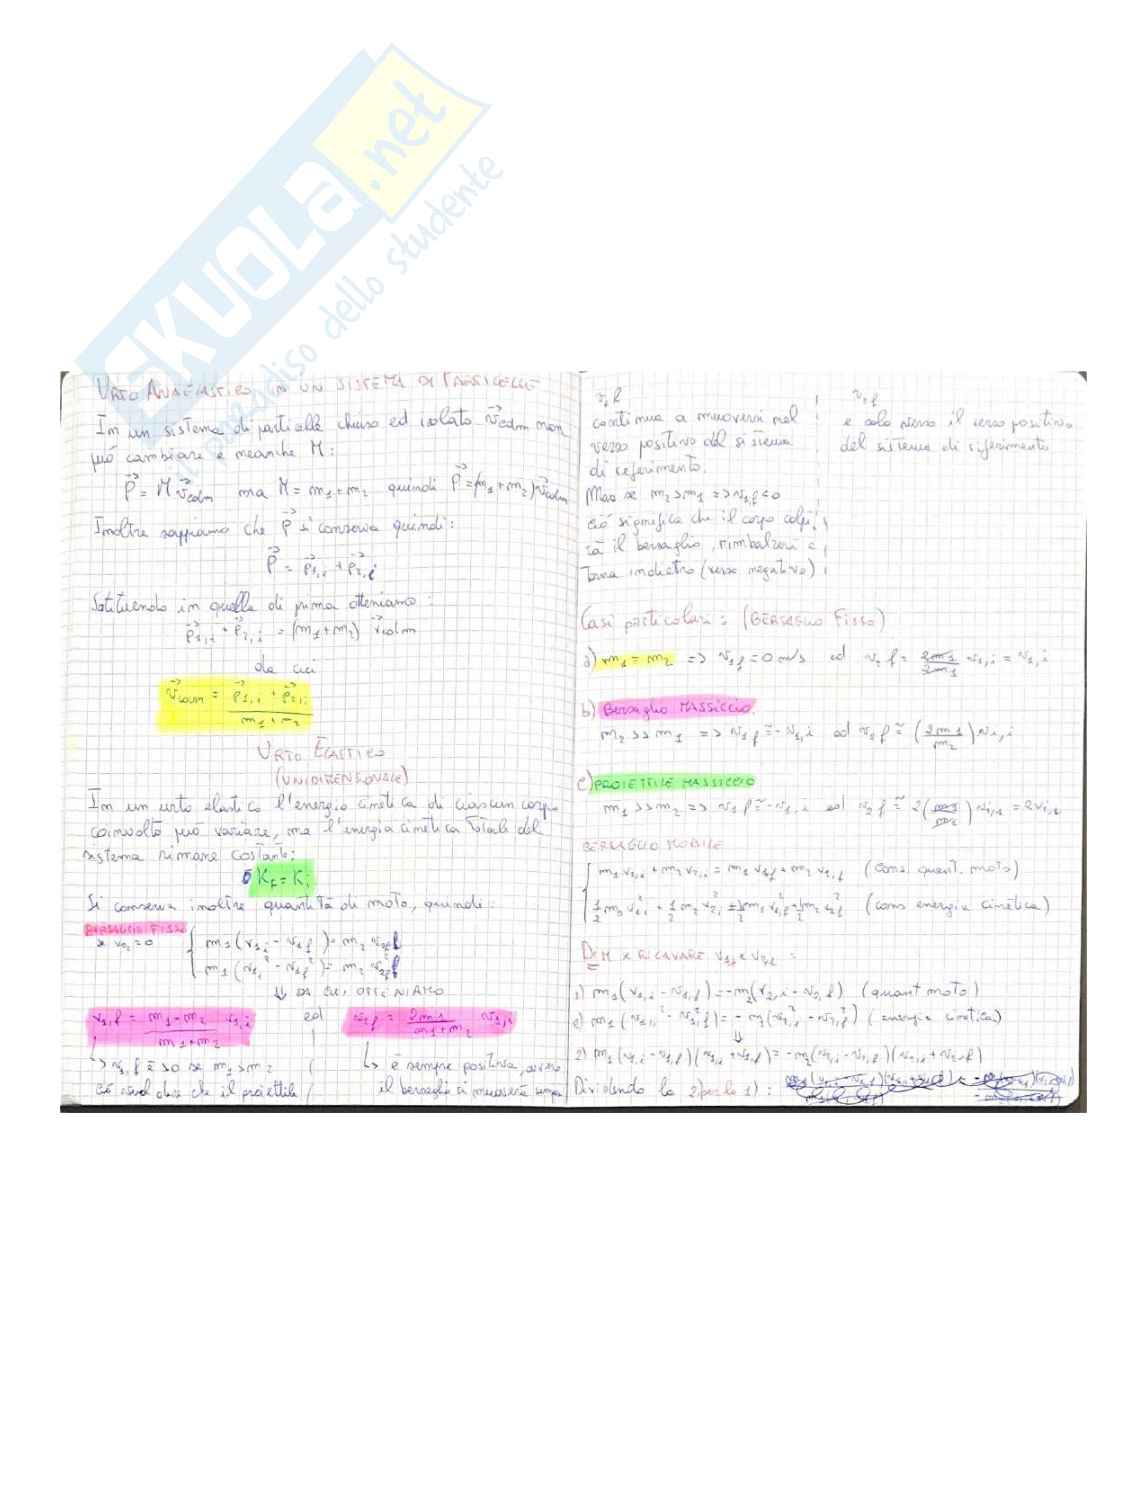 SKUOLA.net
paradiso dello studente
URTO ANAELASTICO IN UN SISTEMA DI PARTICELLE
In un sistema di particelle chiuso ed isolato v⃗cdm non
può cambiare e neanche M:
P⃗ = M v⃗cdm ma M = m1+m2 quindi P⃗ = (m1+m2) v⃗cdm
Inoltre sappiamo che P⃗ si conserva quindi:
P⃗ = p⃗1,i + p⃗2,i
Sotituendo in quella di prima otteniamo:
p⃗1,i + p⃗2,i = (m1+m2) v⃗cdm
da cui
v⃗cdm = (p⃗1,i + p⃗2,i) / (m1+m2)
URTO ELASTICO
(UNIDIMENSIONALE)
In un urto elastico l'energia cinetica di ciascun corpo
coinvolto può variare, ma l'energia cinetica totale del
sistema rimane costante:
Kf = Ki
Si conserva inoltre quantità di moto, quindi:
BERSAGLIO FISSO
x v02=0
m1(v1,i - v1f) = m2 v2f
m1(v1,i² - v1f²) = m2 v2f²
⇓ DA CUI OTTENIAMO
v1,f = (m1-m2)/(m1+m2) v1,i ed v2f = 2m1/(m1+m2) v1,i
↳ v1,f è >0 se m1>m2
ciò vuol dire che il proiettile
↳ è sempre positiva, ovvero
il bersaglio si muoverà sempre
v1f
continua a muoversi nel
verso positivo del sistema
di riferimento.
Mao se m2>m1 => v1,f<0
ciò significa che il corpo colpi
rà il bersaglio, rimbalzerà e
torna indietro (verso negativo)
v2f
e solo verso il verso positivo
del sistema di riferimento
Casi particolari: (BERSAGLIO FISSO)
a) m1 = m2 => v1f = 0 m/s ed v2f = 2m1/2m1 v1,i = v1,i
b) Bersaglio MASSICCIO.
m2 >> m1 => v1f ≅ -v1,i ed v2f ≅ (2m1/m2) v1,i
c) PROIETTILE MASSICCIO
m1 >> m2 => v1f ≅ -v1,i ed v2f ≅ 2(m1/m2) v1,i = 2v1,i
BERSAGLIO MOBILE
m1 v1,i + m2 v2,i = m1 v1f + m2 v2,f (Cons. quant. moto)
1/2 m1 v1i² + 1/2 m2 v2i² = 1/2 m1 v1f² + 1/2 m2 v2f² (cons energia cinetica)
DIM x RICAVARE v1f e v2f =
1) m1(v1,i - v1,f) = -m2(v2,i - v2,f) (quant moto)
2) m1(v1,i² - v1,f²) = -m2(v2,i² - v2,f²) (energia cinetica)
⇓
2) m1(v1,i - v1,f)(v1,i + v1,f) = -m2(v2,i - v2,f)(v2,i + v2,f)
Dividendo la 2) per la 1):